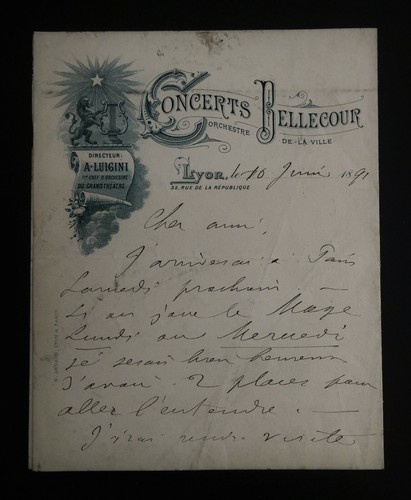 CONCERTS BELLECOUR
ORCHESTRE DE LA VILLE
DIRECTEUR:
A. LUIGINI
1ER CHEF D'ORCHESTRE
DU GRAND THÉATRE
Lyon, le 10 Juin 1891
35, RUE DE LA RÉPUBLIQUE
Cher ami,
J'arriverai à Paris
Samedi prochain. —
Si on joue le Mage
Lundi ou Mercredi
je serais bien heureux
d'avoir 2 places pour
aller l'entendre. —
J'irai rendre visite